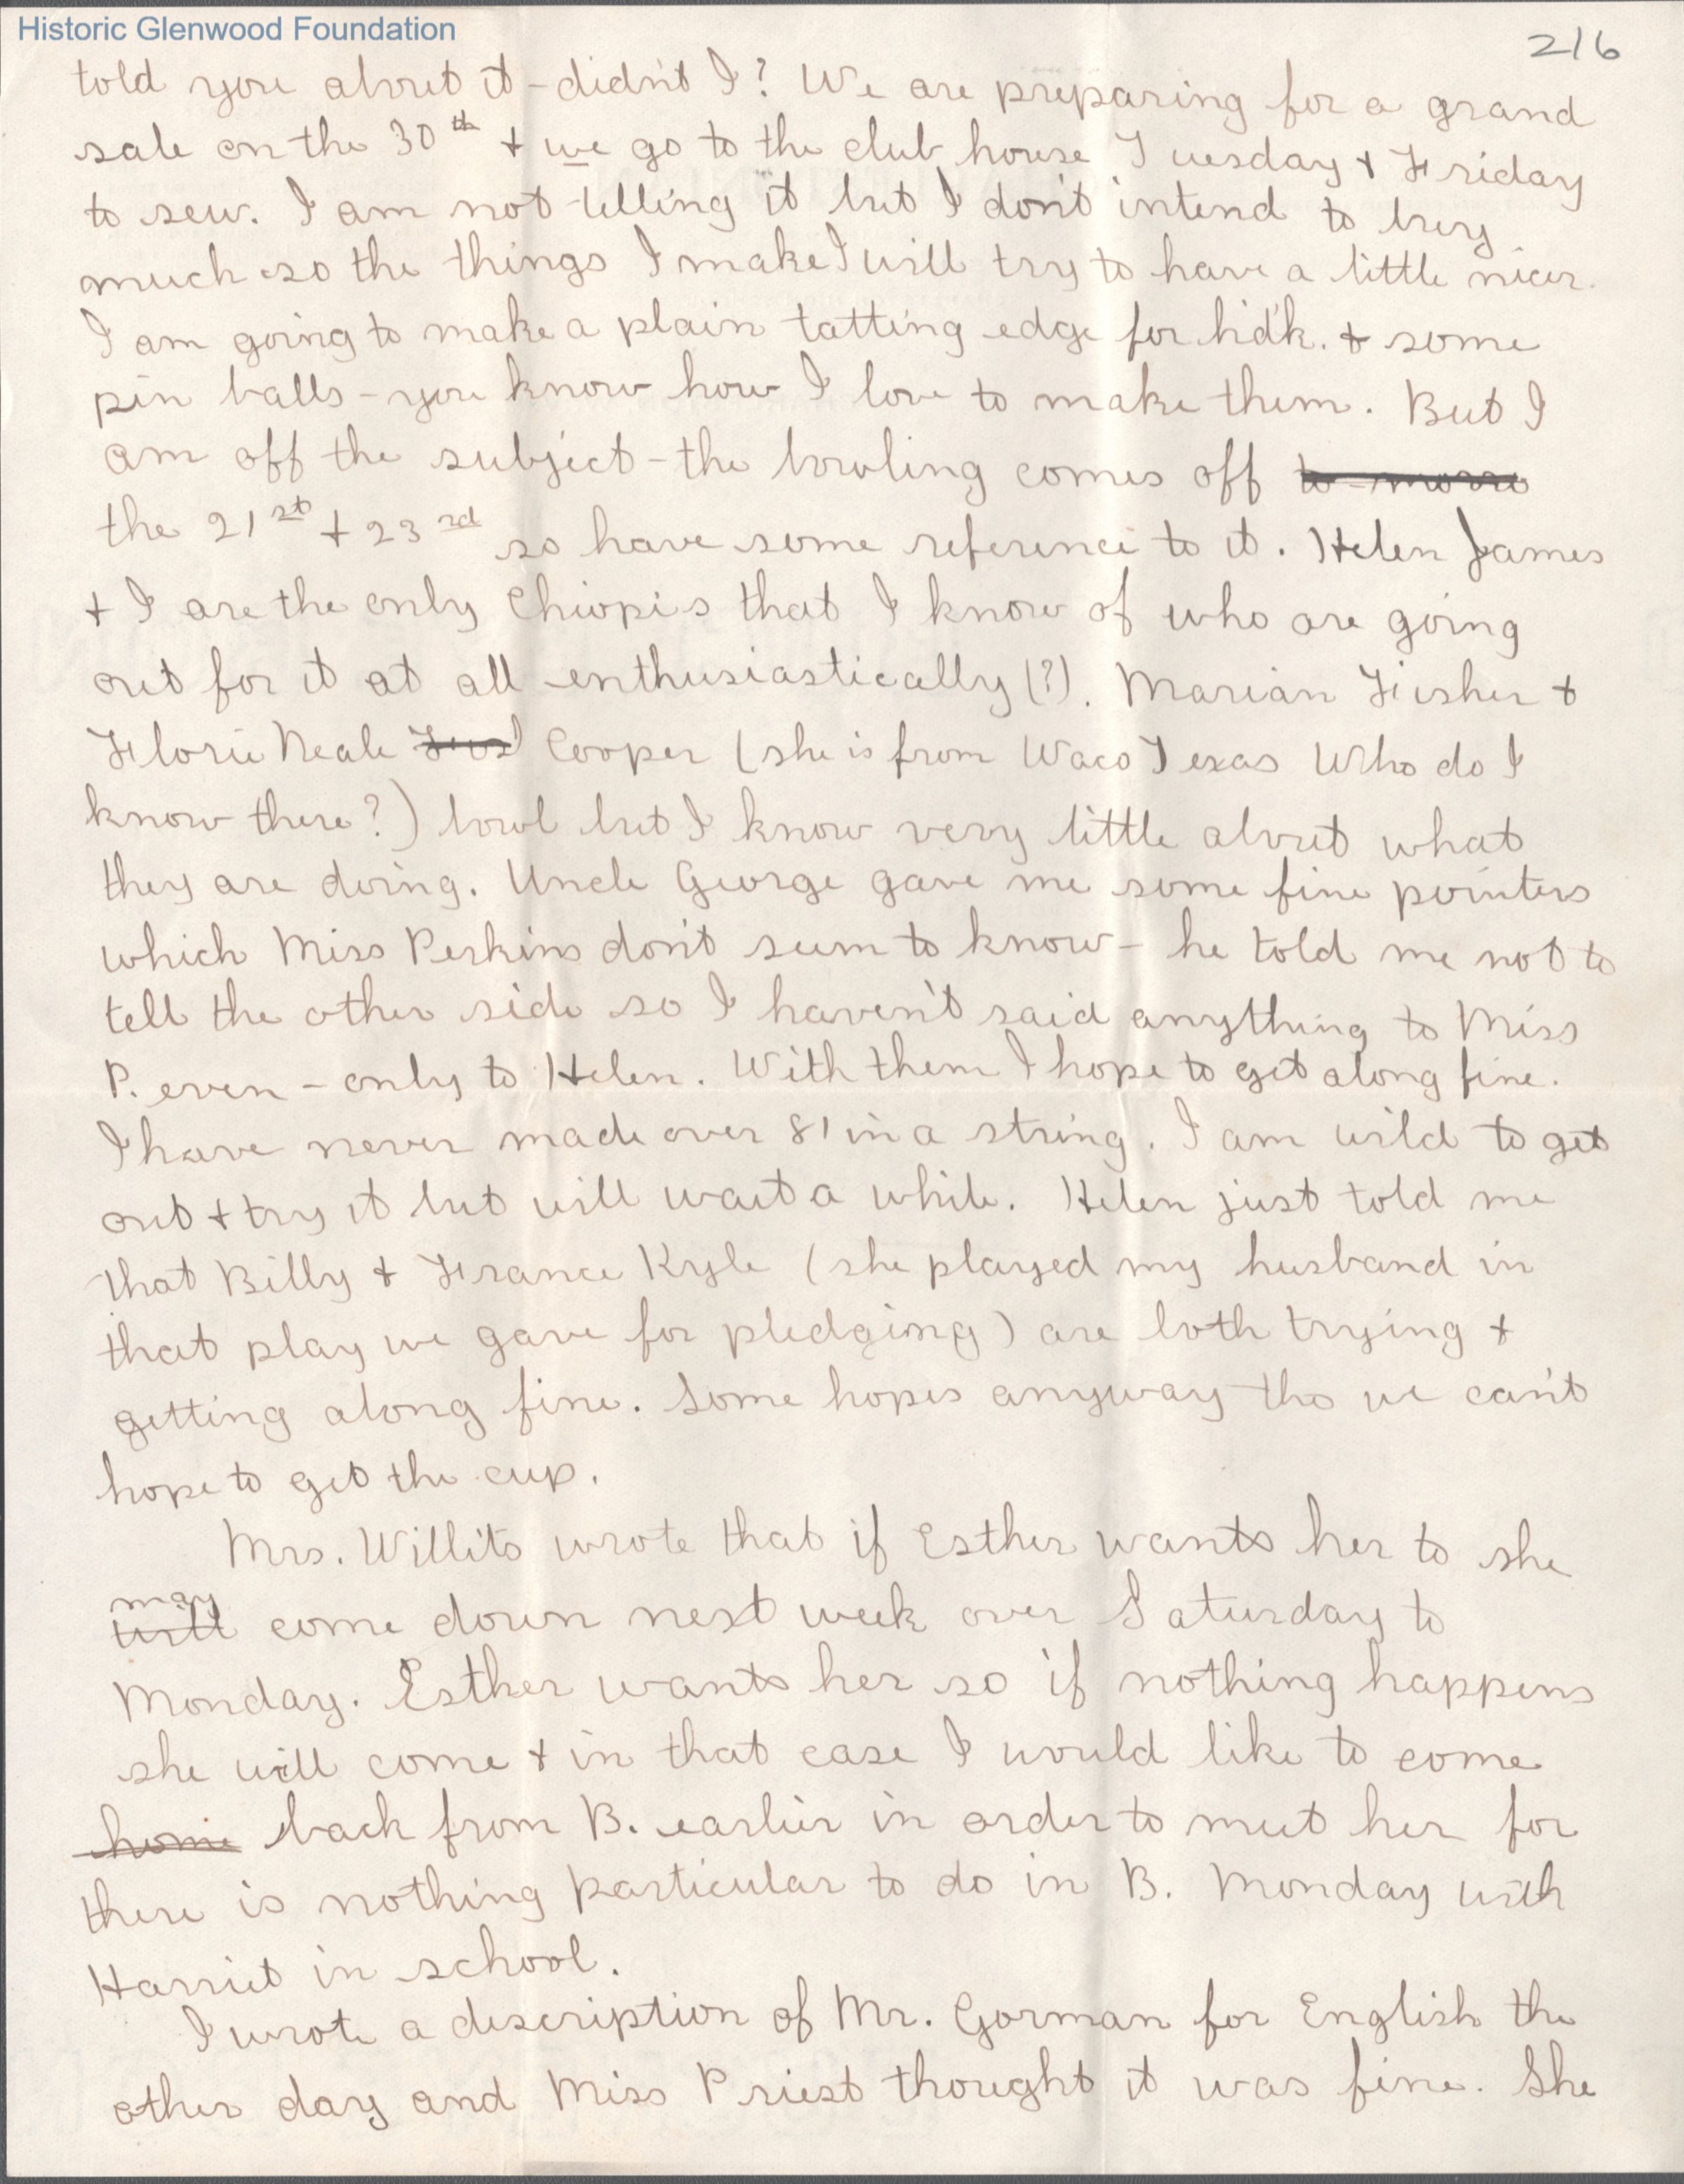 Historic Glenwood Foundation
216
told you about it - didn't I? We are preparing for a grand
sale on the 30th + we go to the club house Tuesday + Friday
to sew. I am not telling it but I don't intend to buy
much so the things I make I will try to have a little nicer.
I am going to make a plain tatting edge for hd'k. + some
pin balls - you know how I love to make them. But I
am off the subject - the bowling comes off to-morro
the 21st + 23rd so have some reference to it. Helen James
+ I are the only Chiopi's that I know of who are going
out for it at all enthusiastically (?). Marian Fisher +
Florie Neale Fos Cooper (she is from Waco Texas Who do I
know there?) bowl but I know very little about what
they are doing. Uncle George gave me some fine pointers
which Miss Perkins don't seem to know - he told me not to
tell the other side so I haven't said anything to Miss
P. even - only to Helen. With them I hope to get along fine.
I have never made over 81 in a string. I am wild to get
out + try it but will wait a while. Helen just told me
that Billy + France Kyle (she played my husband in
that play we gave for pledging) are both trying +
getting along fine. Some hopes anyway tho we can't
hope to get the cup.
Mrs. Willits wrote that if Esther wants her to she
may
will come down next week over Saturday to
Monday. Esther wants her so if nothing happens
she will come + in that case I would like to come
home back from B. earlier in order to meet her for
there is nothing particular to do in B. Monday with
Harriet in school.
I wrote a description of Mr. Gorman for English the
other day and Miss Priest thought it was fine. She